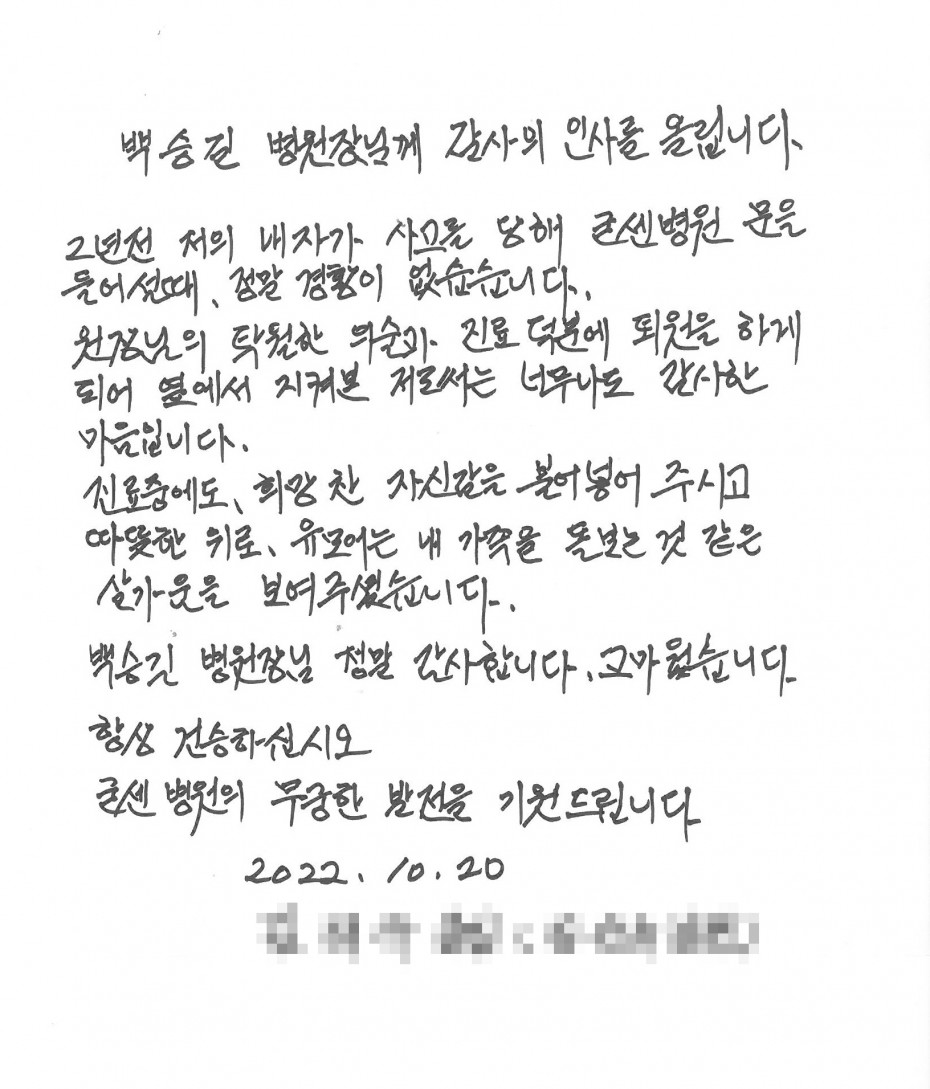 백승길 병원장님께 감사의 인사를 올립니다.
2년전 저의 내자가 사고를 당해 굳센병원 문을
들어선때, 정말 경황이 없습습니다.
원장님의 탁월한 의술과 진료 덕분에 퇴원을 하게
되어 옆에서 지켜본 저로서는 너무나도 감사한
마음입니다.
진료중에도, 희망 찬 자신감을 불어넣어 주시고
따뜻한 위로, 유모어는 내 가족을 돌보는 것 같은
살가움을 보여주셨습니다.
백승길 병원장님 정말 감사합니다. 고마웠습니다.
항상 건승하십시오
굳센 병원의 무궁한 발전을 기원드립니다.
2022. 10. 20